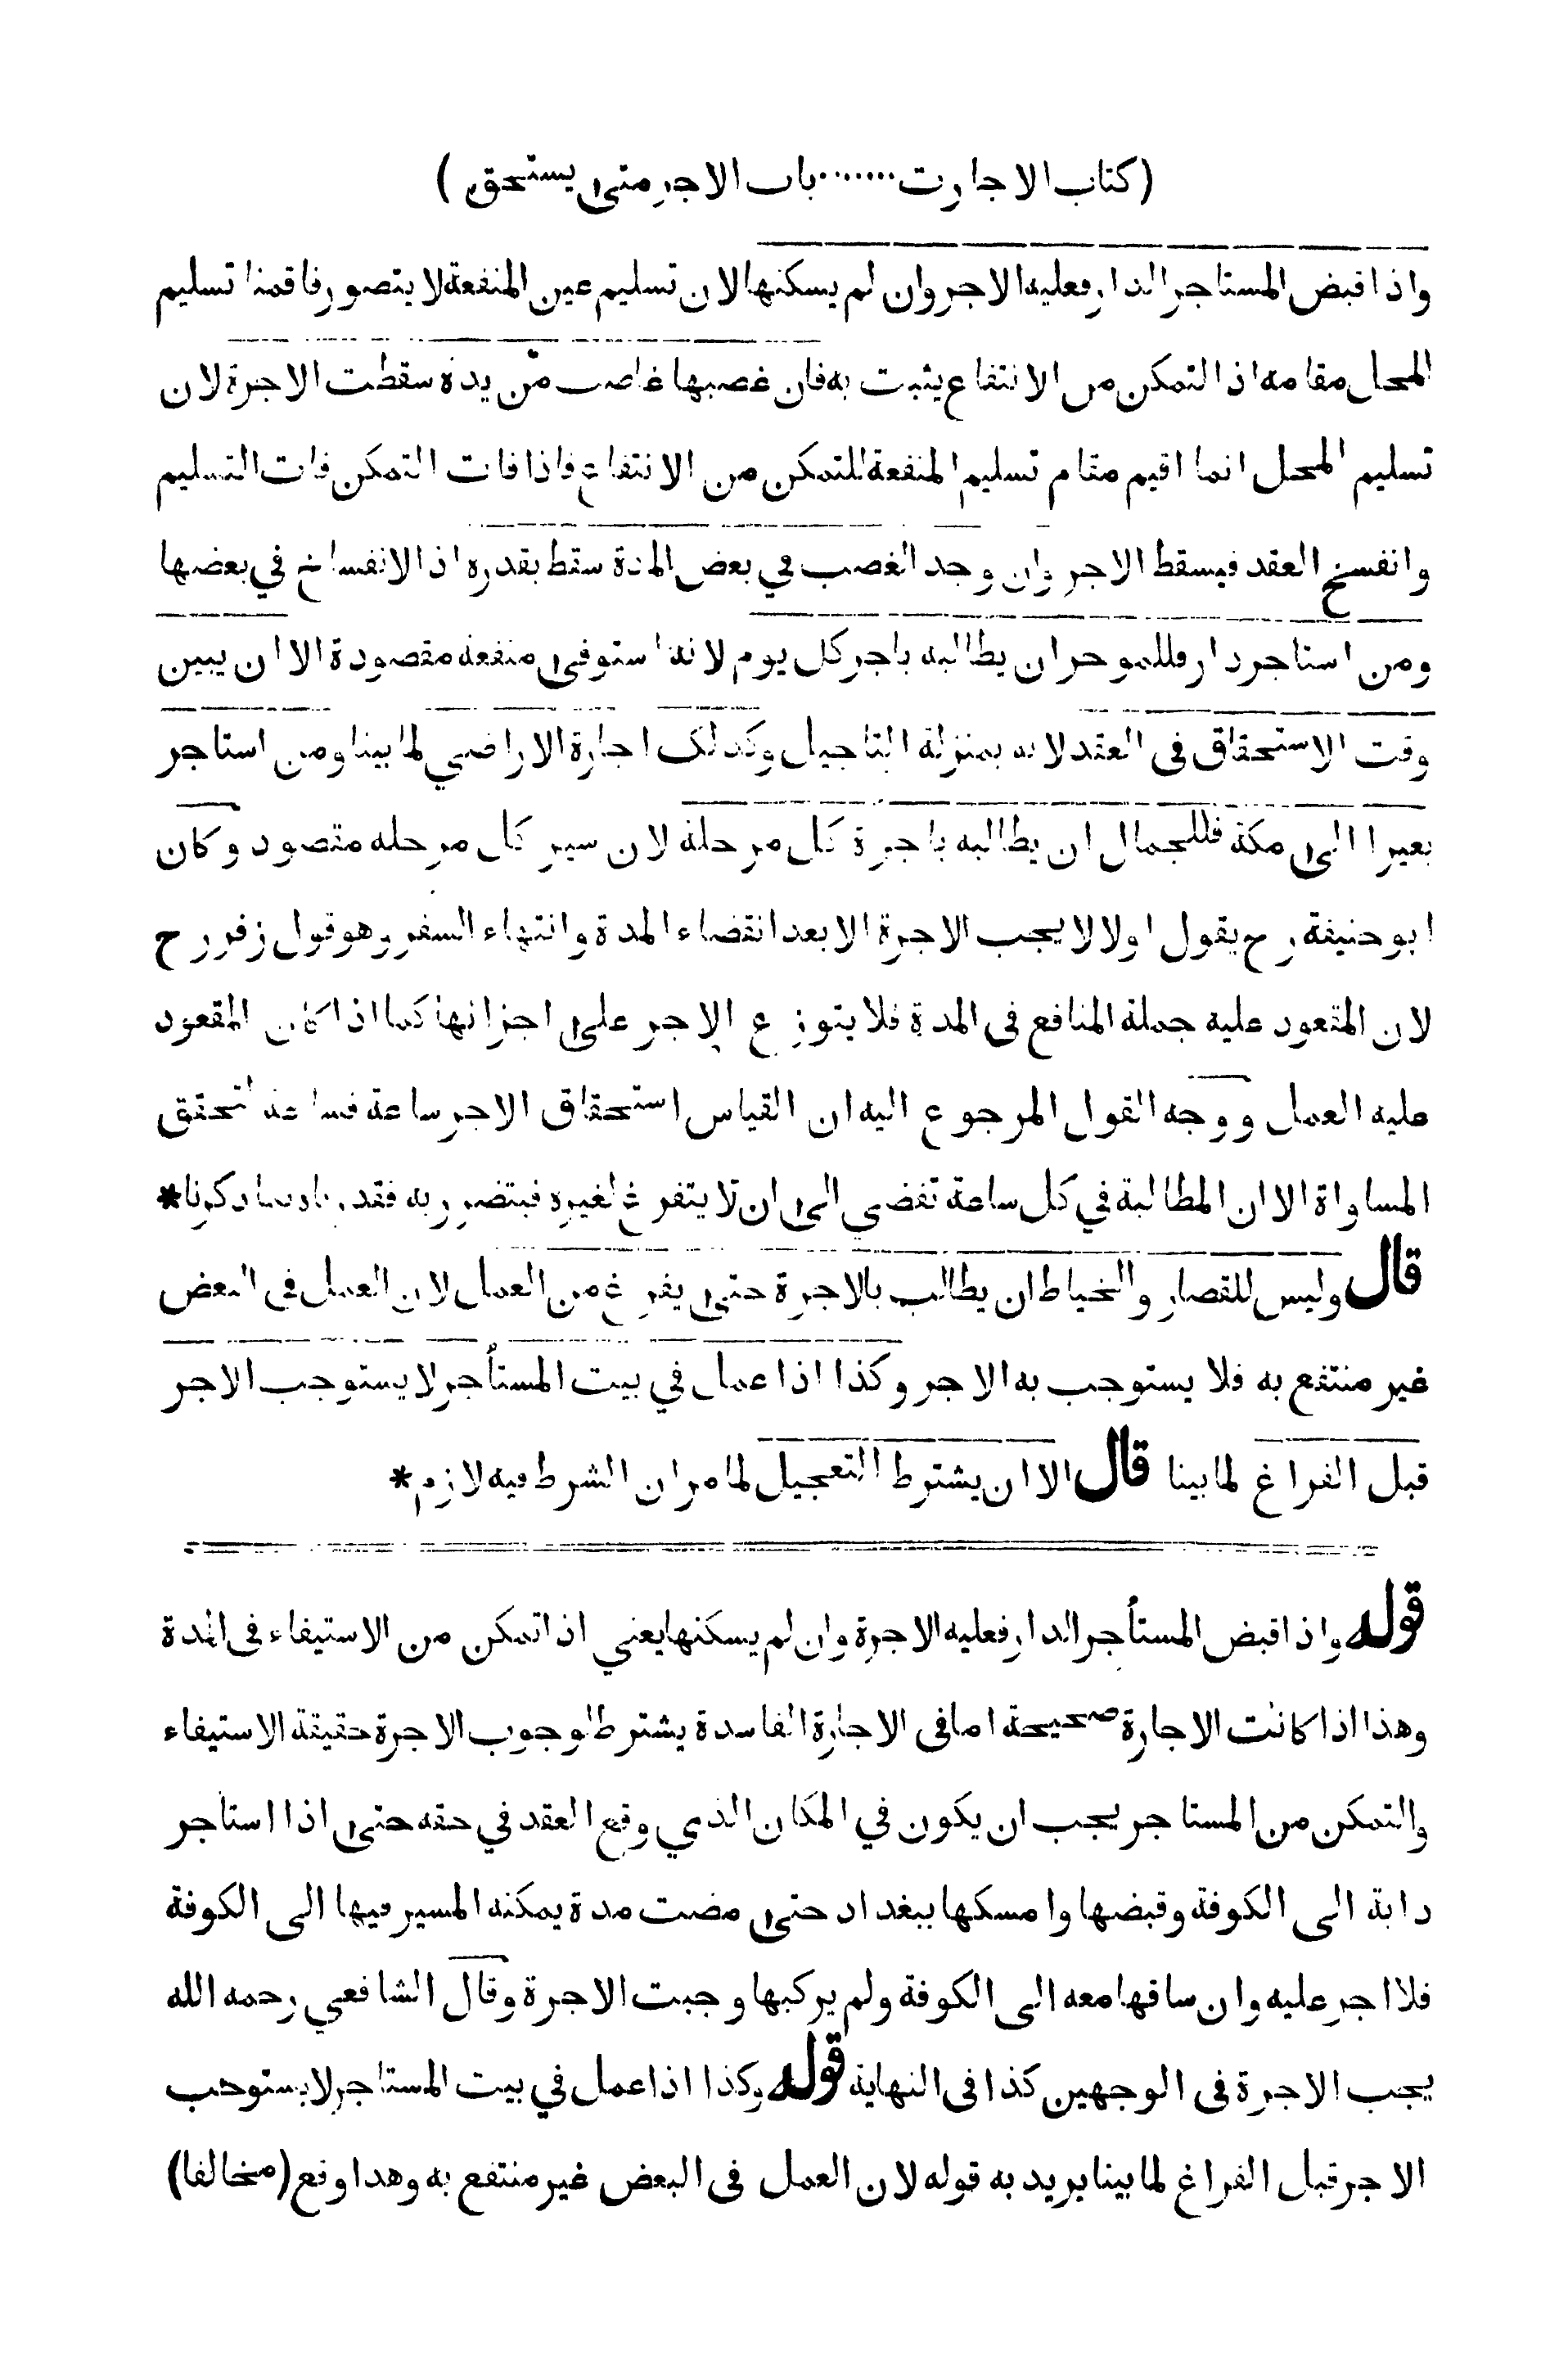 (كتاب الاجارت ........ باب الاجر متى يستحق)
واذا قبض المستاجر الدار فعليه الاجر وان لم يسكنها لان تسليم عين المنفعة لا يتصور فاقمنا تسليم
المحل مقامه اذ التمكن من الانتفاع يثبت به فان غصبها غاصب من يده سقطت الاجرة لان
تسليم المحل انما اقيم مقام تسليم المنفعة للتمكن من الانتفاع فاذا فات التمكن فات التسليم
وانفسخ العقد فيسقط الاجر وان وجد الغصب في بعض المدة سقط بقدره اذ الانفساخ في بعضها
ومن استاجر دار فللموجر ان يطالبه باجر كل يوم لانه استوفى منفعه مقصودة الا ان يبين
وقت الاستحقاق فى العقد لانه بمنزلة التاجيل وكذلك اجارة الاراضي لما بينا ومن استاجر
بعيرا الى مكة فللجمال ان يطالبه باجرة كل مرحلة لان سير كل مرحله مقصود وكان
ابو حنيفة رح يقول اولا لا يجب الاجرة الا بعد انقضاء المدة وانتهاء السفر وهو قول زفر رح
لان المقعود عليه جملة المنافع فى المدة فلا يتوزع الاجر على اجزائها كما اذا كان المقعود
عليه العمل ووجه القول المرجوع اليه ان القياس استحقاق الاجر ساعة فساعة لتحقق
المساواة الا ان المطالبة في كل ساعة تفضي الى ان لا يتفرغ لغيره فيتضرر به فقدرنا بما ذكرنا*
قال وليس للقصار والخياط ان يطالب بالاجرة حتى يفرغ من العمل لان العمل فى البعض
غير منتفع به فلا يستوجب به الاجر وكذا اذا عمل في بيت المستأجر لا يستوجب الاجر
قبل الفراغ لما بينا قال الا ان يشترط التعجيل لما مر ان الشرط فيه لازم*
قوله واذا قبض المستأجر الدار فعليه الاجرة وان لم يسكنها يعني اذا تمكن من الاستيفاء فى المدة
وهذا اذا كانت الاجارة صحيحة اما فى الاجارة الفاسدة يشترط لوجوب الاجرة حقيقة الاستيفاء
والتمكن من المستاجر يجب ان يكون في المكان الذي وقع العقد في حقه حتى اذا استأجر
دابة الى الكوفة وقبضها وامسكها ببغداد حتى مضت مدة يمكنه المسير فيها الى الكوفة
فلا اجر عليه وان ساقها معه الى الكوفة ولم يركبها وجبت الاجرة وقال الشافعي رحمه الله
يجب الاجرة فى الوجهين كذا فى النهاية قوله وكذا اذا عمل في بيت المستاجر لا يستوجب
الاجر قبل الفراغ لما بينا يريد به قوله لان العمل فى البعض غير منتفع به وهذا وقع (مخالفا)